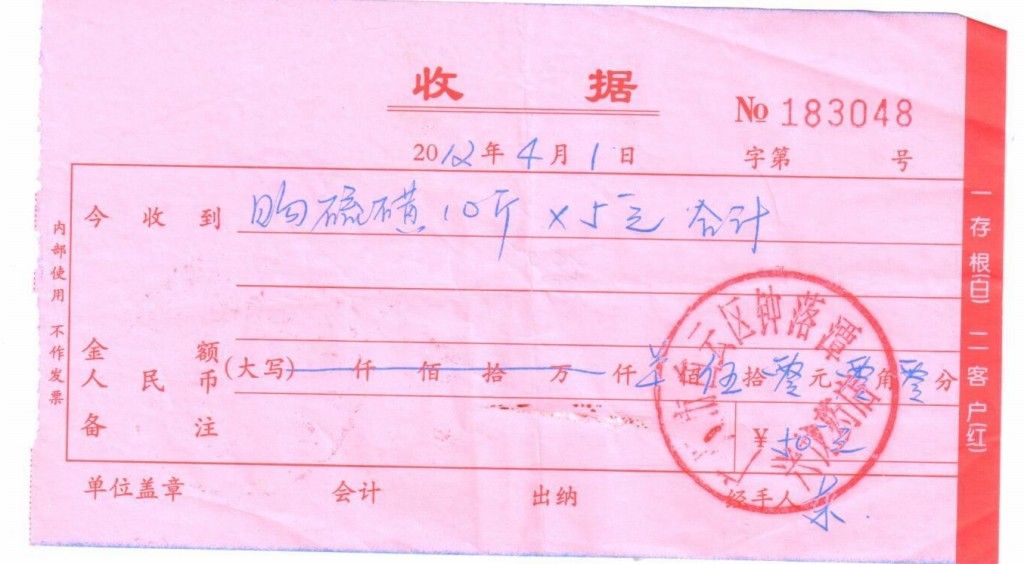 收 据
No 183048
2012年4月1日 字第 号
今收到 购硫磺10斤×5元 合计
金额
人民币 (大写) 仟 佰 拾 万 仟 佰 伍拾零元零角零分
备注 ¥
单位盖章 会计 出纳 经手人
内部使用 不作发票
一存根(白) 二客户(红)
云区钟落潭